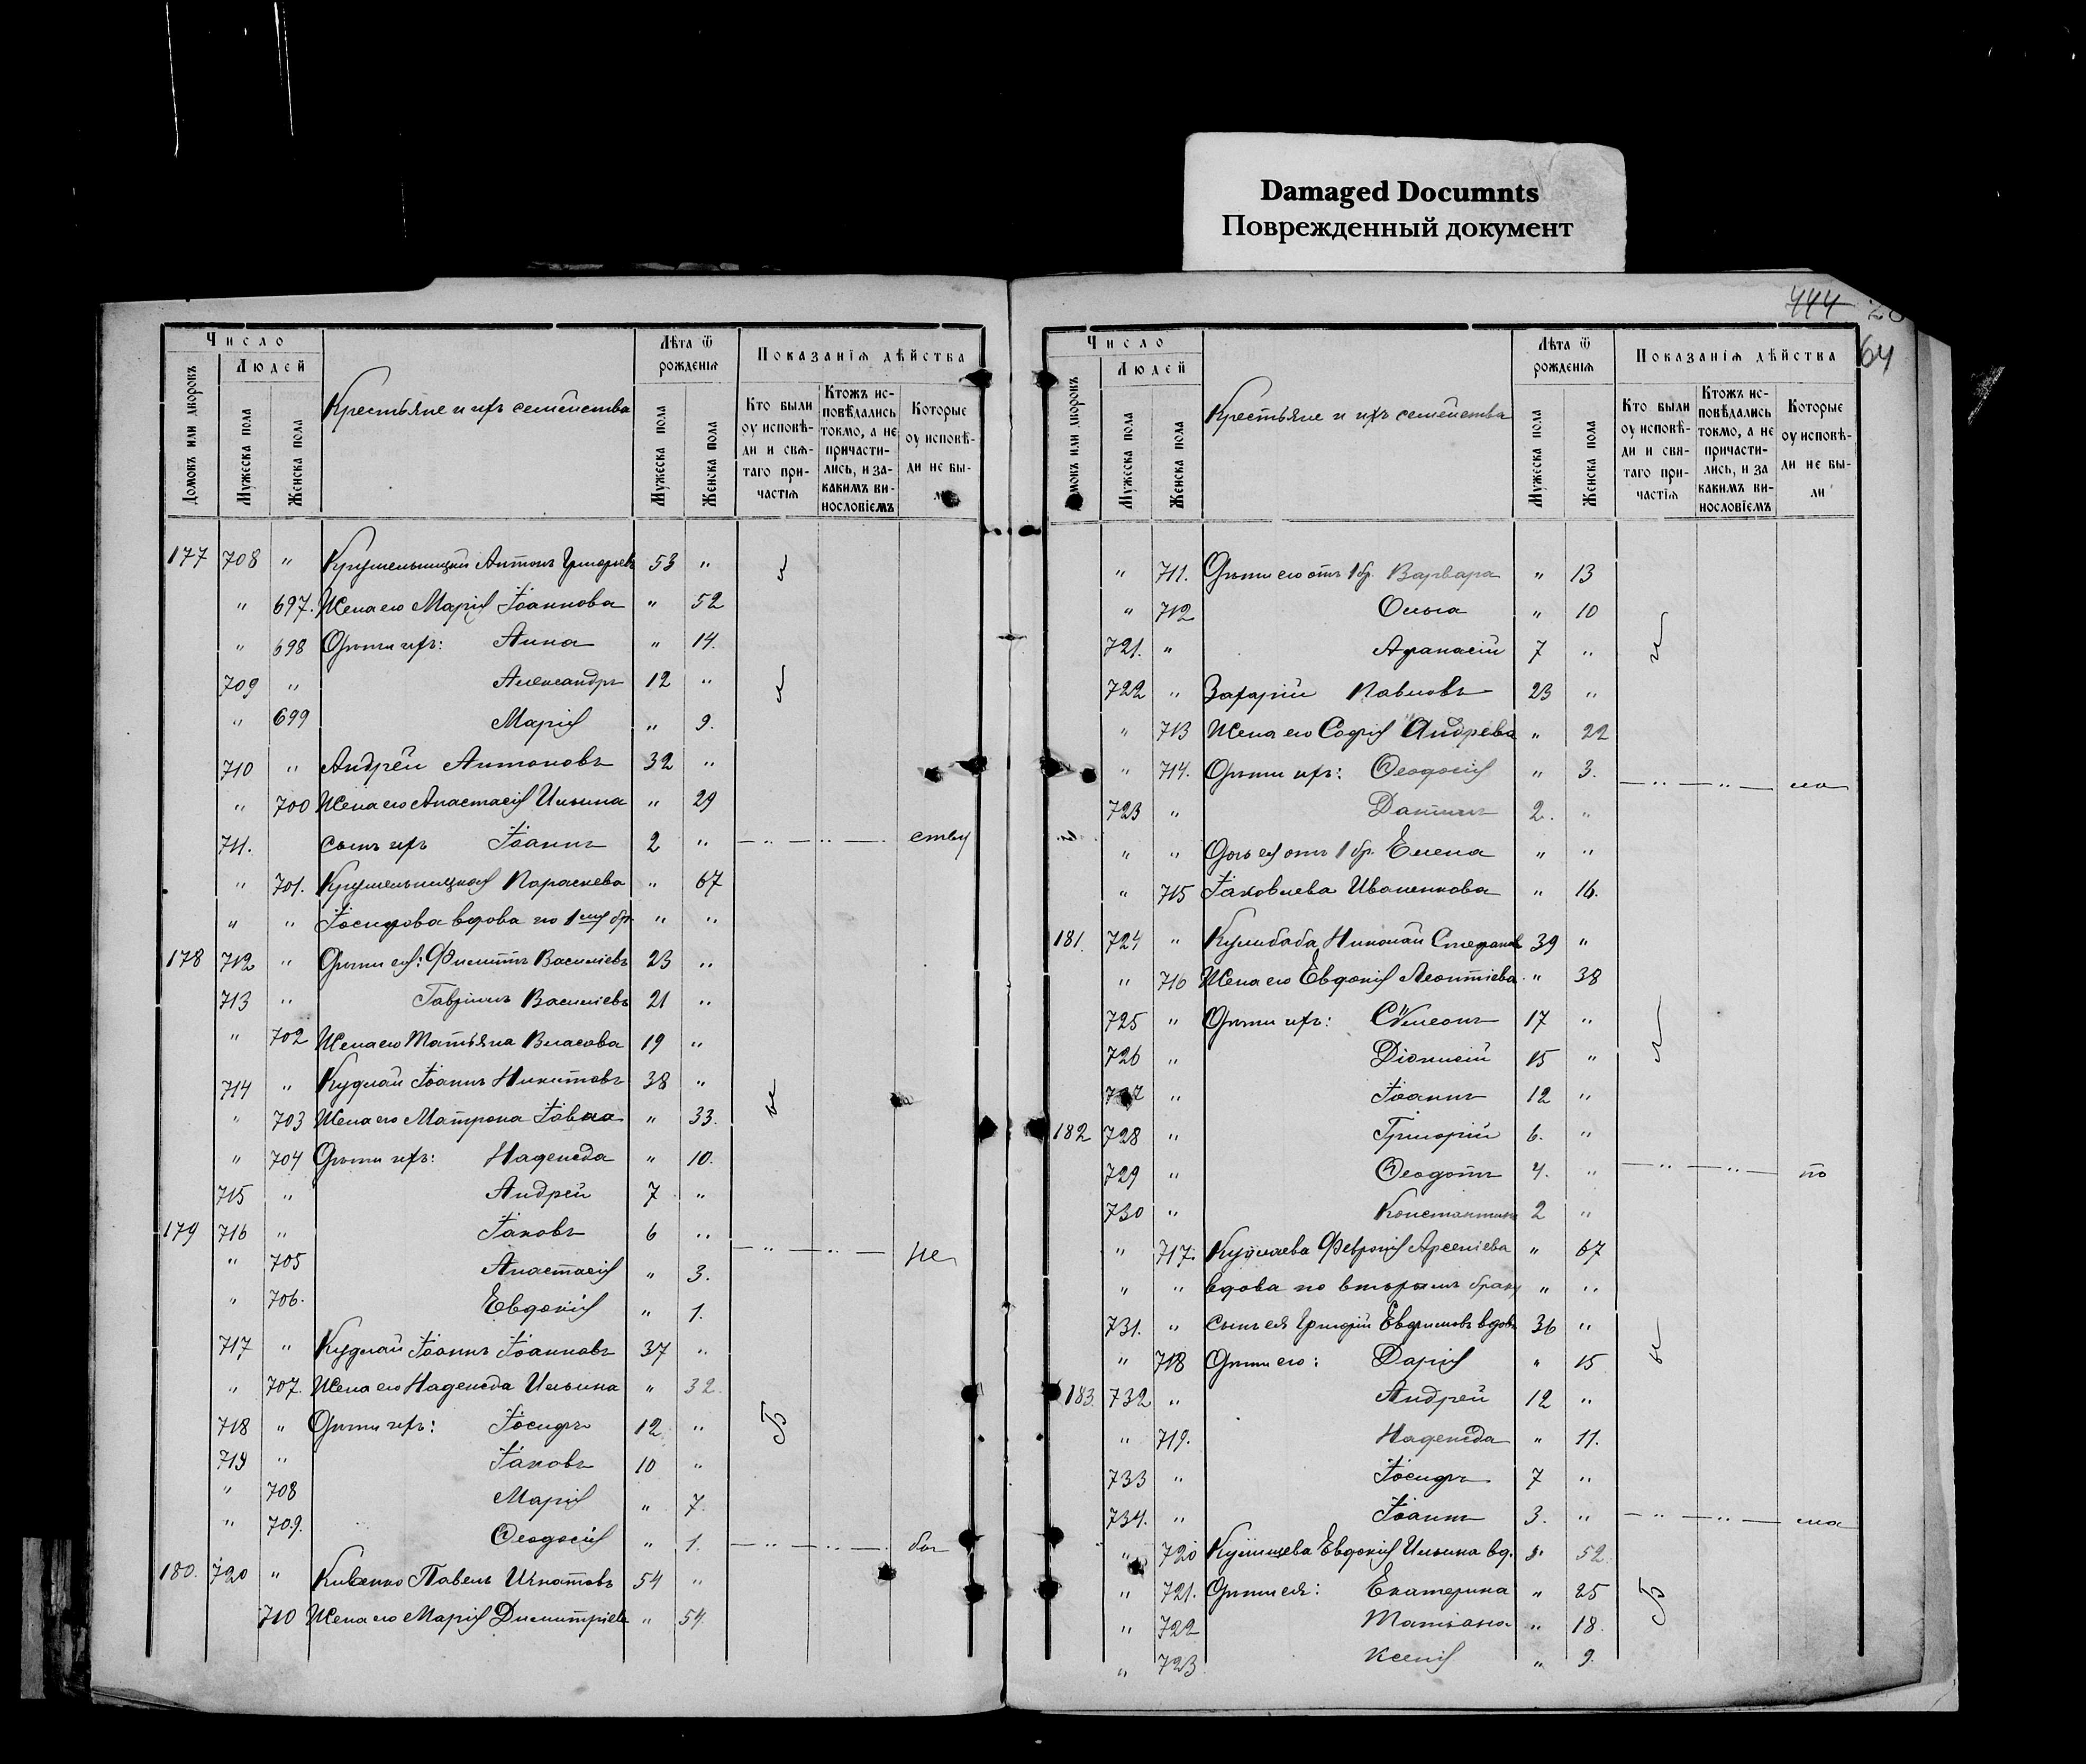 Damaged Documnts
Поврежденный документ
444
64
Число
Людей
Домовъ или дворовъ
Мужеска пола
Женска пола
Крестьяне и ихъ семейства
Лѣта ѿ рожденія
Мужеска пола
Женска пола
Показанія дѣйства
Кто были оу исповѣ-
ди и свя-
таго при-
частія
Ктожъ ис-
повѣдались
токмо, а не
причасти-
лись, и за-
какимъ ви-
нословіемъ
Которые
оу исповѣ-
ди не бы-
ли
177 708 " Крушельницкій Антонъ Григорьевъ 53 "
" 697. Жена его Марія Іоаннова " 52
" 698 Дѣти ихъ: Анна " 14.
709 " Александръ 12 "
" 699 Марія " 9.
710 " Андрей Антоновъ 32 "
" 700 Жена его Анастасія Ильина " 29
711. сынъ ихъ Іоаннъ 2 " — " — " — ству
" 701. Крушельницкая Параскева " 67
" " Іосифова вдова по 1му бр. " "
178 712 " Дѣти ея: Филиппъ Василіевъ 23 "
713 " Гавріилъ Василіевъ 21 "
" 702 Жена его Татьяна Власова 19 "
714 " Кудлай Іоаннъ Никитовъ 38 "
" 703 Жена его Матрона " 33.
" 704 Дѣти ихъ: Надежда " 10.
715 " Андрей 7 "
179 716 " Іаковъ 6 "
" 705 Анастасія " 3. — " — " — не
" 706. Евдокія " 1.
717 " Кудлай Іоаннъ Іоанновъ 37 "
" 707. Жена его Надежда Ильина " 32
718 " Дѣти ихъ: Іосифъ 12 "
719 " Іаковъ 10 "
" 708 Марія " 7.
" 709. Ѳеодосія " 1. — " — " —
180. 720 " Кивенко Павелъ Игнатовъ 54 "
710 Жена его Марія Димитріева " 54
Число
Людей
Домовъ или дворовъ
Мужеска пола
Женска пола
Крестьяне и ихъ семейства
Лѣта ѿ рожденія
Мужеска пола
Женска пола
Показанія дѣйства
Кто были
оу исповѣ-
ди и свя-
таго при-
частія
Ктожъ ис-
повѣдались
токмо, а не
причасти-
лись, и за
какимъ ви-
нословіемъ
Которые
оу исповѣ-
ди не бы-
ли
" 711. Дѣти его отъ 1 бр. Варвара " 13
" 712 Ольга " 10
721. " Афанасій 7 "
722 " Захарій Павловъ 23 "
" 713 Жена его Софія Андреева " 22
" 714. Дѣти ихъ: Ѳеодосія " 3. — " — " —
723 " Даніилъ 2. "
" " Дочь ея отъ 1 бр. Елена " "
" 715 Іаковлева Иваненкова " 16.
181. 724 " Кулибаба Николай Стефановъ 39 "
" 716 Жена его Евдокія Леонтіева " 38
725 " Дѣти ихъ: Сѵмеонъ 17 "
726 " Діонисій 15 "
727 " Іоаннъ 12 "
182 728 " Григорій 6. "
729 " Ѳеодотъ 4. " — " — " — по
730 " Константинъ 2 "
" 717. Кудлаева Февронія Арсеніева " 67
" " вдова по вторымъ браку " "
731. " сынъ ея Григорій Евфимовъ вдовъ 36 "
" 718 Дѣти его: Дарія " 15
183. 732 " Андрей 12 "
" 719. Надежда " 11.
733 " Іосифъ 7 "
734. " Іоаннъ 3. " — " — " —
" 720 Евдокія Ильина вд. " 52
" 721. Дѣти ея: Екатерина " 25
" 722 Татіана " 18.
" 723 Ксенія " 9.